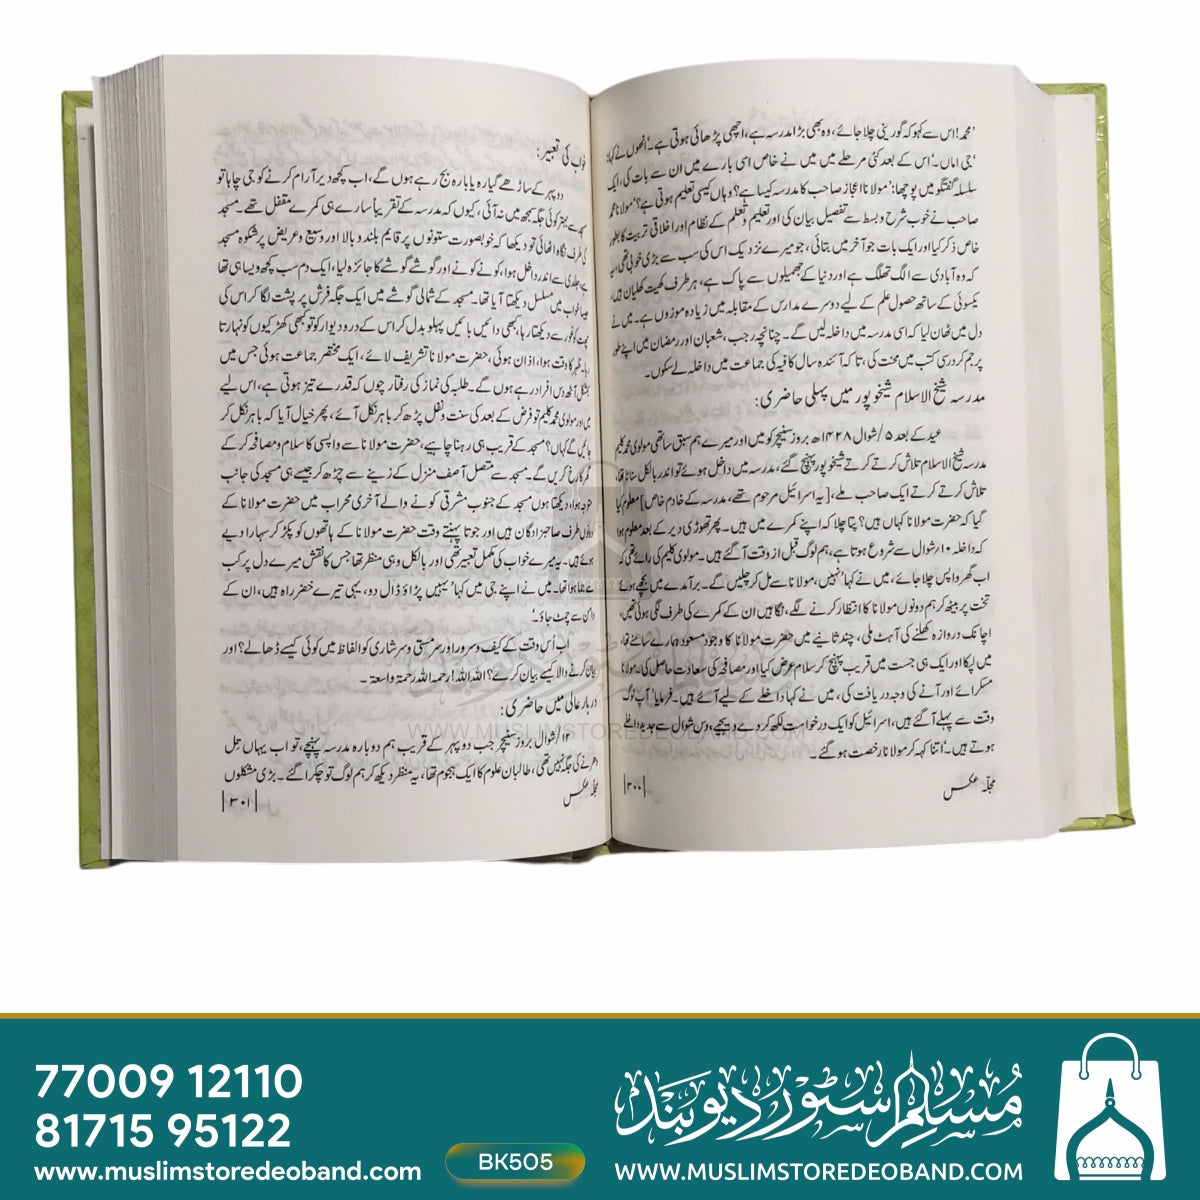 'محمد! اس سے کہو کہ گورینی چلا جائے، وہ بھی بڑا مدرسہ ہے، اچھی پڑھائی ہوتی ہے۔' انھوں نے کہا:
'جی اماں۔' اس کے بعد کئی مرحلے میں میں نے خاص اسی بارے میں ان سے بات کی، ایک
سلسلہ گفتگو میں پوچھا: 'مولانا اعجاز صاحب کا مدرسہ کیسا ہے؟ وہاں کیسی تعلیم ہوتی ہے؟' مولانا محمد
صاحب نے خوب شرح و بسط سے تفصیل بیان کی اور تعلیم و تعلم کے نظام اور اخلاقی تربیت کا بطور
خاص ذکر کیا اور ایک بات جو آخر میں بتائی، جو میرے نزدیک اس کی سب سے بڑی خوبی تھی، یہ
کہ وہ آبادی سے الگ تھلگ ہے اور دنیا کے جھمیلوں سے پاک ہے، ہر طرف کھیت کھلیان ہیں،
یکسوئی کے ساتھ حصول علم کے لیے دوسرے مدارس کے مقابلہ میں زیادہ موزوں ہے۔ میں نے
دل میں ٹھان لیا کہ اسی مدرسہ میں داخلہ لیں گے۔ چنانچہ رجب، شعبان اور رمضان میں اپنے طور
پر جم کر درسی کتب میں محنت کی، تاکہ آئندہ سال کافیہ کی جماعت میں داخلہ لے سکوں۔
مدرسہ شیخ الاسلام شیخوپور میں پہلی حاضری:
عید کے بعد ۵/شوال ۱۴۲۸ھ بروز سنیچر کو میں اور میرے ہم سبق ساتھی مولوی محمد کلیم
مدرسہ شیخ الاسلام تلاش کرتے کرتے شیخوپور پہنچ گئے، مدرسہ میں داخل ہوئے تو اندر بالکل سناٹا تھا،
تلاش کرتے کرتے ایک صاحب ملے، [یہ اسرائیل مرحوم تھے، مدرسہ کے خادم خاص] معلوم کیا
گیا کہ حضرت مولانا کہاں ہیں؟ پتا چلا کہ اپنے کمرے میں ہیں۔ پھر تھوڑی دیر کے بعد معلوم ہوا
کہ داخلہ ۱۰/شوال سے شروع ہوتا ہے، ہم لوگ قبل از وقت آ گئے ہیں۔ مولوی کلیم کی رائے تھی کہ
اب گھر واپس چلا جائے، میں نے کہا 'نہیں، مولانا سے مل کر چلیں گے۔ برآمدے میں بچھے ہوئے
تخت پر بیٹھ کر ہم دونوں مولانا کا انتظار کرنے لگے، نگاہیں ان کے کمرے کی طرف لگی ہوئی تھیں،
اچانک دروازہ کھلنے کی آہٹ ملی، چند ثانیے میں حضرت مولانا کا وجود مسعود ہمارے سامنے تھا،
میں لپکا اور ایک ہی جست میں قریب پہنچ کر سلام عرض کیا اور مصافحہ کی سعادت حاصل کی۔ مولانا
مسکرائے اور آنے کی وجہ دریافت کی، میں نے کہا داخلے کے لیے آئے ہیں۔ فرمایا 'آپ لوگ
وقت سے پہلے آ گئے ہیں، اسرائیل کو ایک درخواست لکھ کر دے دیجیے، دس شوال سے جدید داخلے
ہوتے ہیں۔' اتنا کہہ کر مولانا رخصت ہو گئے۔
مجلہ عکس
|۳۰۰|
خواب کی تعبیر:
دوپہر کے ساڑھے گیارہ یا بارہ بج رہے ہوں گے، اب کچھ دیر آرام کرنے کو جی چاہا تو
سے بہتر کوئی جگہ سمجھ میں نہ آئی، کیوں کہ مدرسہ کے تقریباً سارے ہی کمرے مقفل تھے۔ مسجد
کی طرف نگاہ اٹھائی تو دیکھا کہ خوبصورت ستونوں پر قایم بلند و بالا اور وسیع و عریض پرشکوہ مسجد
ہے، جلدی سے اندر داخل ہوا، کونے کونے اور گوشے گوشے کا جائزہ لیا، ایک دم سب کچھ ویسا ہی تھا
جیسا خواب میں مسلسل دیکھتا آیا تھا۔ مسجد کے شمالی گوشے میں ایک جگہ فرش پر پشت لگا کر اس کی
چھت کو غور سے دیکھتا رہا، کبھی دائیں بائیں پہلو بدل کر اس کے درو دیوار کو تو کبھی کھڑکیوں کو نہارتا
رہا۔ ظہر کا وقت ہوا، اذان ہوئی، حضرت مولانا تشریف لائے، ایک مختصر جماعت ہوئی جس میں
بمشکل آٹھ دس افراد رہے ہوں گے۔ طلبہ کی نماز کی رفتار چوں کہ قدرے تیز ہوتی ہے، اس لیے
میں اور مولوی محمد کلیم تو فرض کے بعد کی سنت و نفل پڑھ کر باہر نکل آئے، پھر خیال آیا کہ باہر نکل کر
جائیں گے کہاں؟ مسجد کے قریب ہی رہنا چاہیے، حضرت مولانا سے واپسی کا سلام و مصافحہ کر کے
گھر کا رخ کریں گے۔ مسجد سے متصل آصف منزل کے زینے سے چڑھ کر جیسے ہی مسجد کی جانب
متوجہ ہوا، دیکھتا ہوں مسجد کے جنوب مشرقی کونے والے آخری محراب میں حضرت مولانا کے
دونوں طرف صاحبزادگان ہیں اور جوتا پہنتے وقت حضرت مولانا کے ہاتھوں کو پکڑ کر سہارا دیے
ہوئے ہیں۔ یہ میرے خواب کی مکمل تعبیر تھی اور بالکل وہی منظر تھا جس کا نقش میرے دل پر کب
سے جما ہوا تھا۔ میں نے اپنے جی میں کہا 'یہیں پڑاؤ ڈال دو، یہی تیرے خضر راہ ہیں، ان کے
دامن سے چمٹ جاؤ۔'
اب اُس وقت کے کیف و سرور اور سرمستی و سرشاری کو الفاظ میں کوئی کیسے ڈھالے؟ اور
بیان کرنے والا کیسے بیان کرے؟ اللہ اللہ! رحمہ اللہ رحمۃ واسعۃ۔
دربار عالی میں حاضری:
۱۲/شوال بروز سنیچر جب دوپہر کے قریب ہم دوبارہ مدرسہ پہنچے، تو اب یہاں تِل
دھرنے کی جگہ نہیں تھی، طالبان علوم کا ایک ہجوم تھا، یہ منظر دیکھ کر ہم لوگ تو چکرا گئے۔ بڑی مشکلوں
مجلہ عکس
|۳۰۱|
WWW.MUSLIMSTOREDEOBAND.COM
77009 12110
81715 95122
www.muslimstoredeoband.com
BK505
مسلم سٹور دیوبند
WWW.MUSLIMSTOREDEOBAND.COM